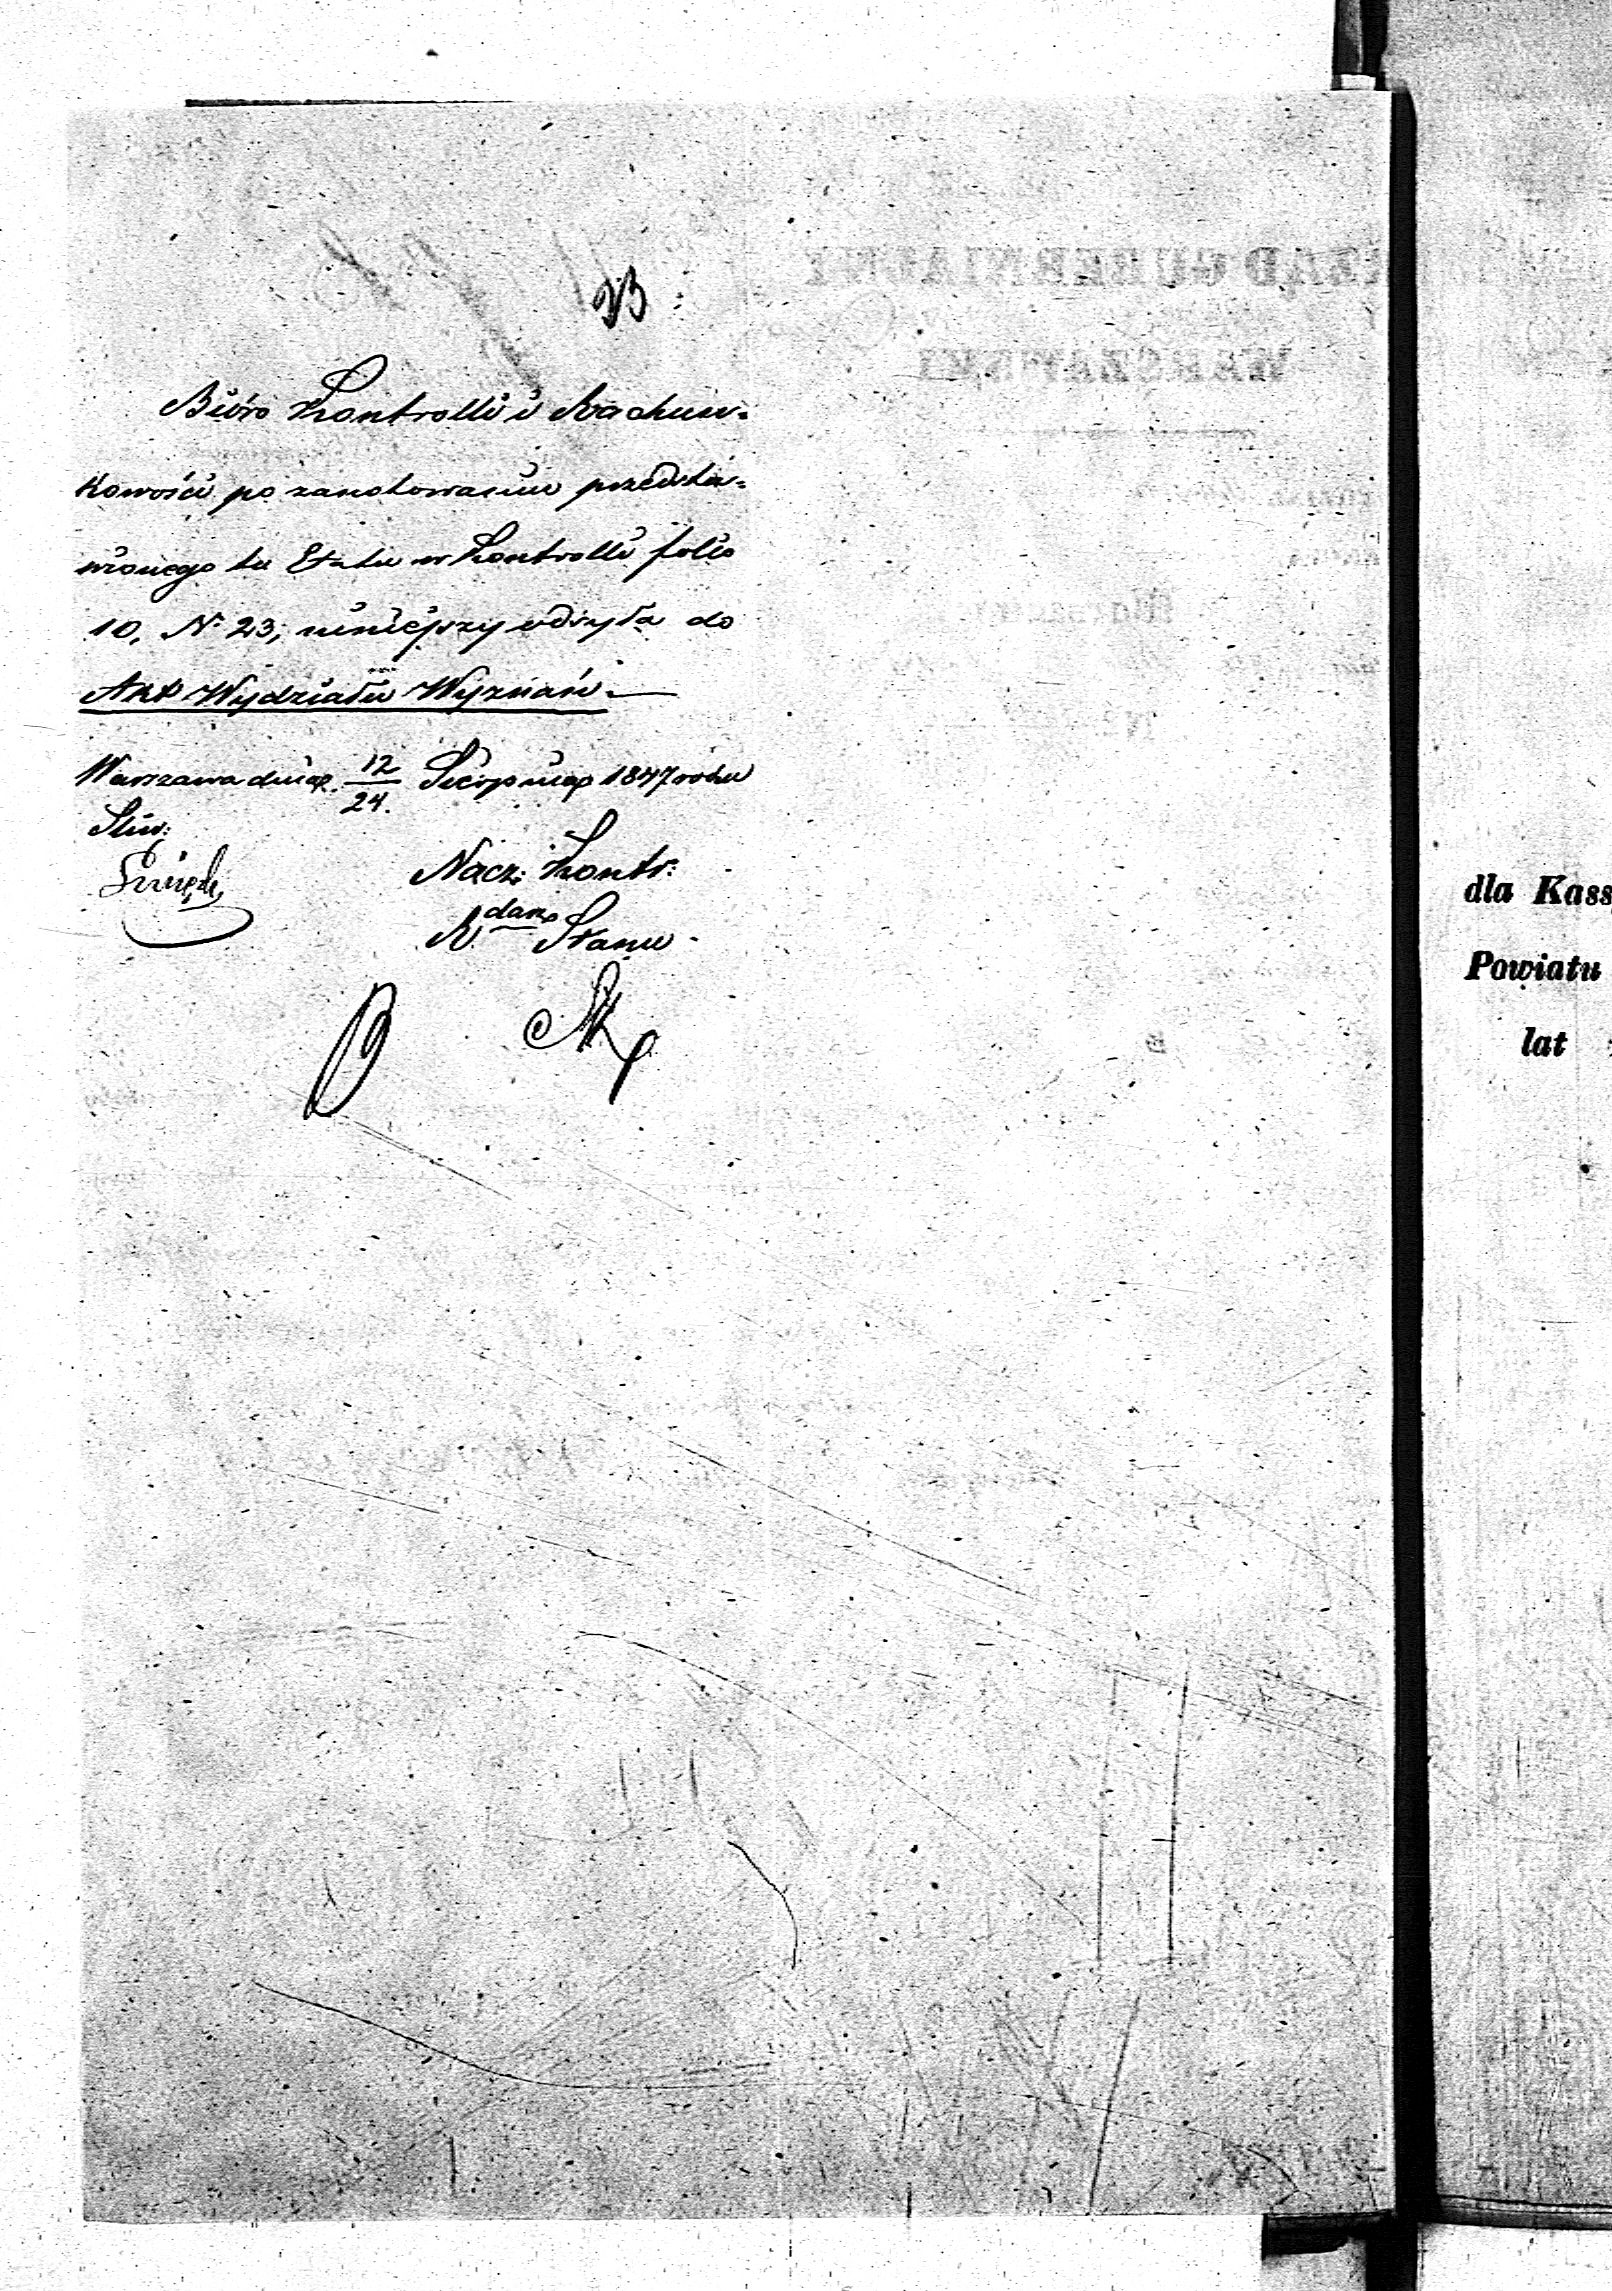 23
Biuro Kontrolli i Rachun=
kowości po zanotowaniu przedsta=
wionego tu Etatu w Kontrolli folio
10, N 23, niniejszy odsyła do
Akt Wydziału Wyznań.
Warszawa dnia 12/24. Sierpnia 1847 roku
Nacz: Kontr:
R dca Stanu
dla Kass
Powiatu
lat